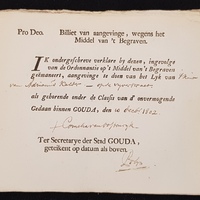 Pro Deo. Billiet van aangevinge, wegens het
Middel van 't Begraven.
IK ondergeschreve verklare by dezen, ingevolge
van de Ordonnantie op 't Middel van 't Begraven
geëmaneert, aangevinge te doen van het Lyk van
van
als gehorende onder de Classis van d' onvermogende
Gedaan binnen GOUDA, den 10 1802
Ter Secretarye der Stad GOUDA,
geteikent op datum als boven.